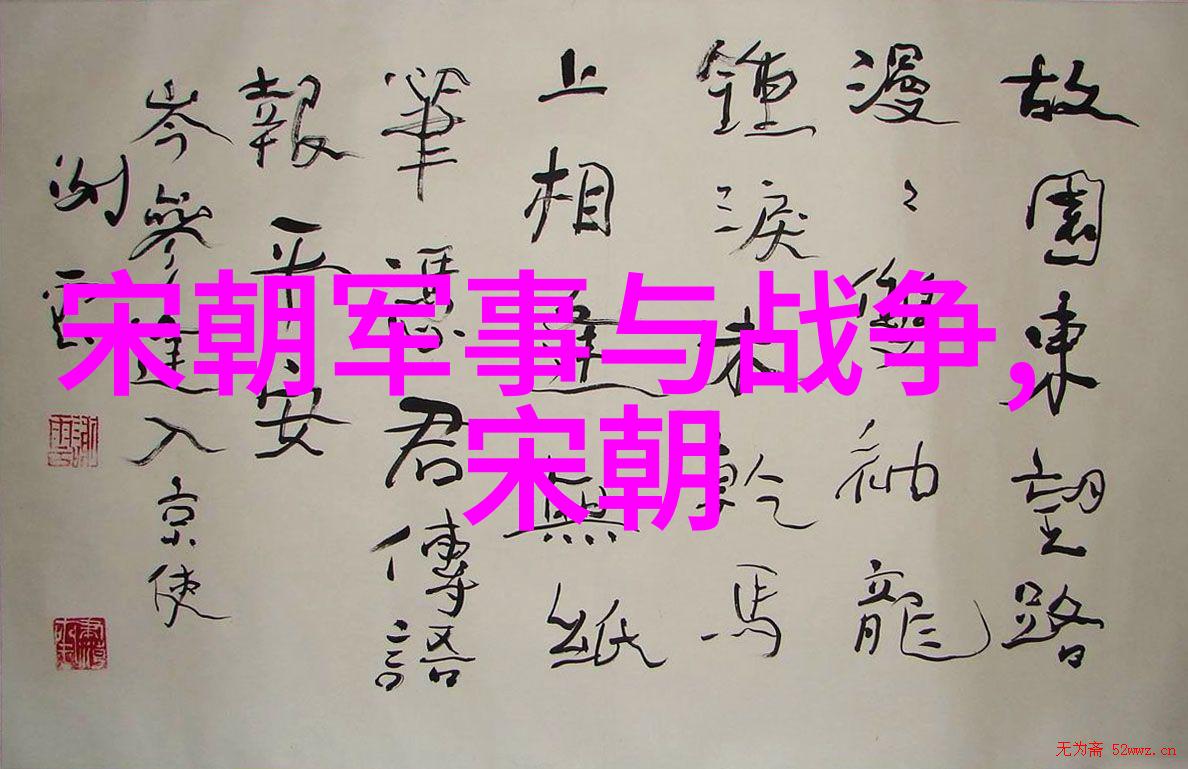 故園東望路
漫〻雙袖龍
鍾淚未乾馬
上相逢無紙
筆憑君傳語
報平安
岑參逢入京使
宋朝军事与战争，
宋朝
无为斋 52wwz.cn